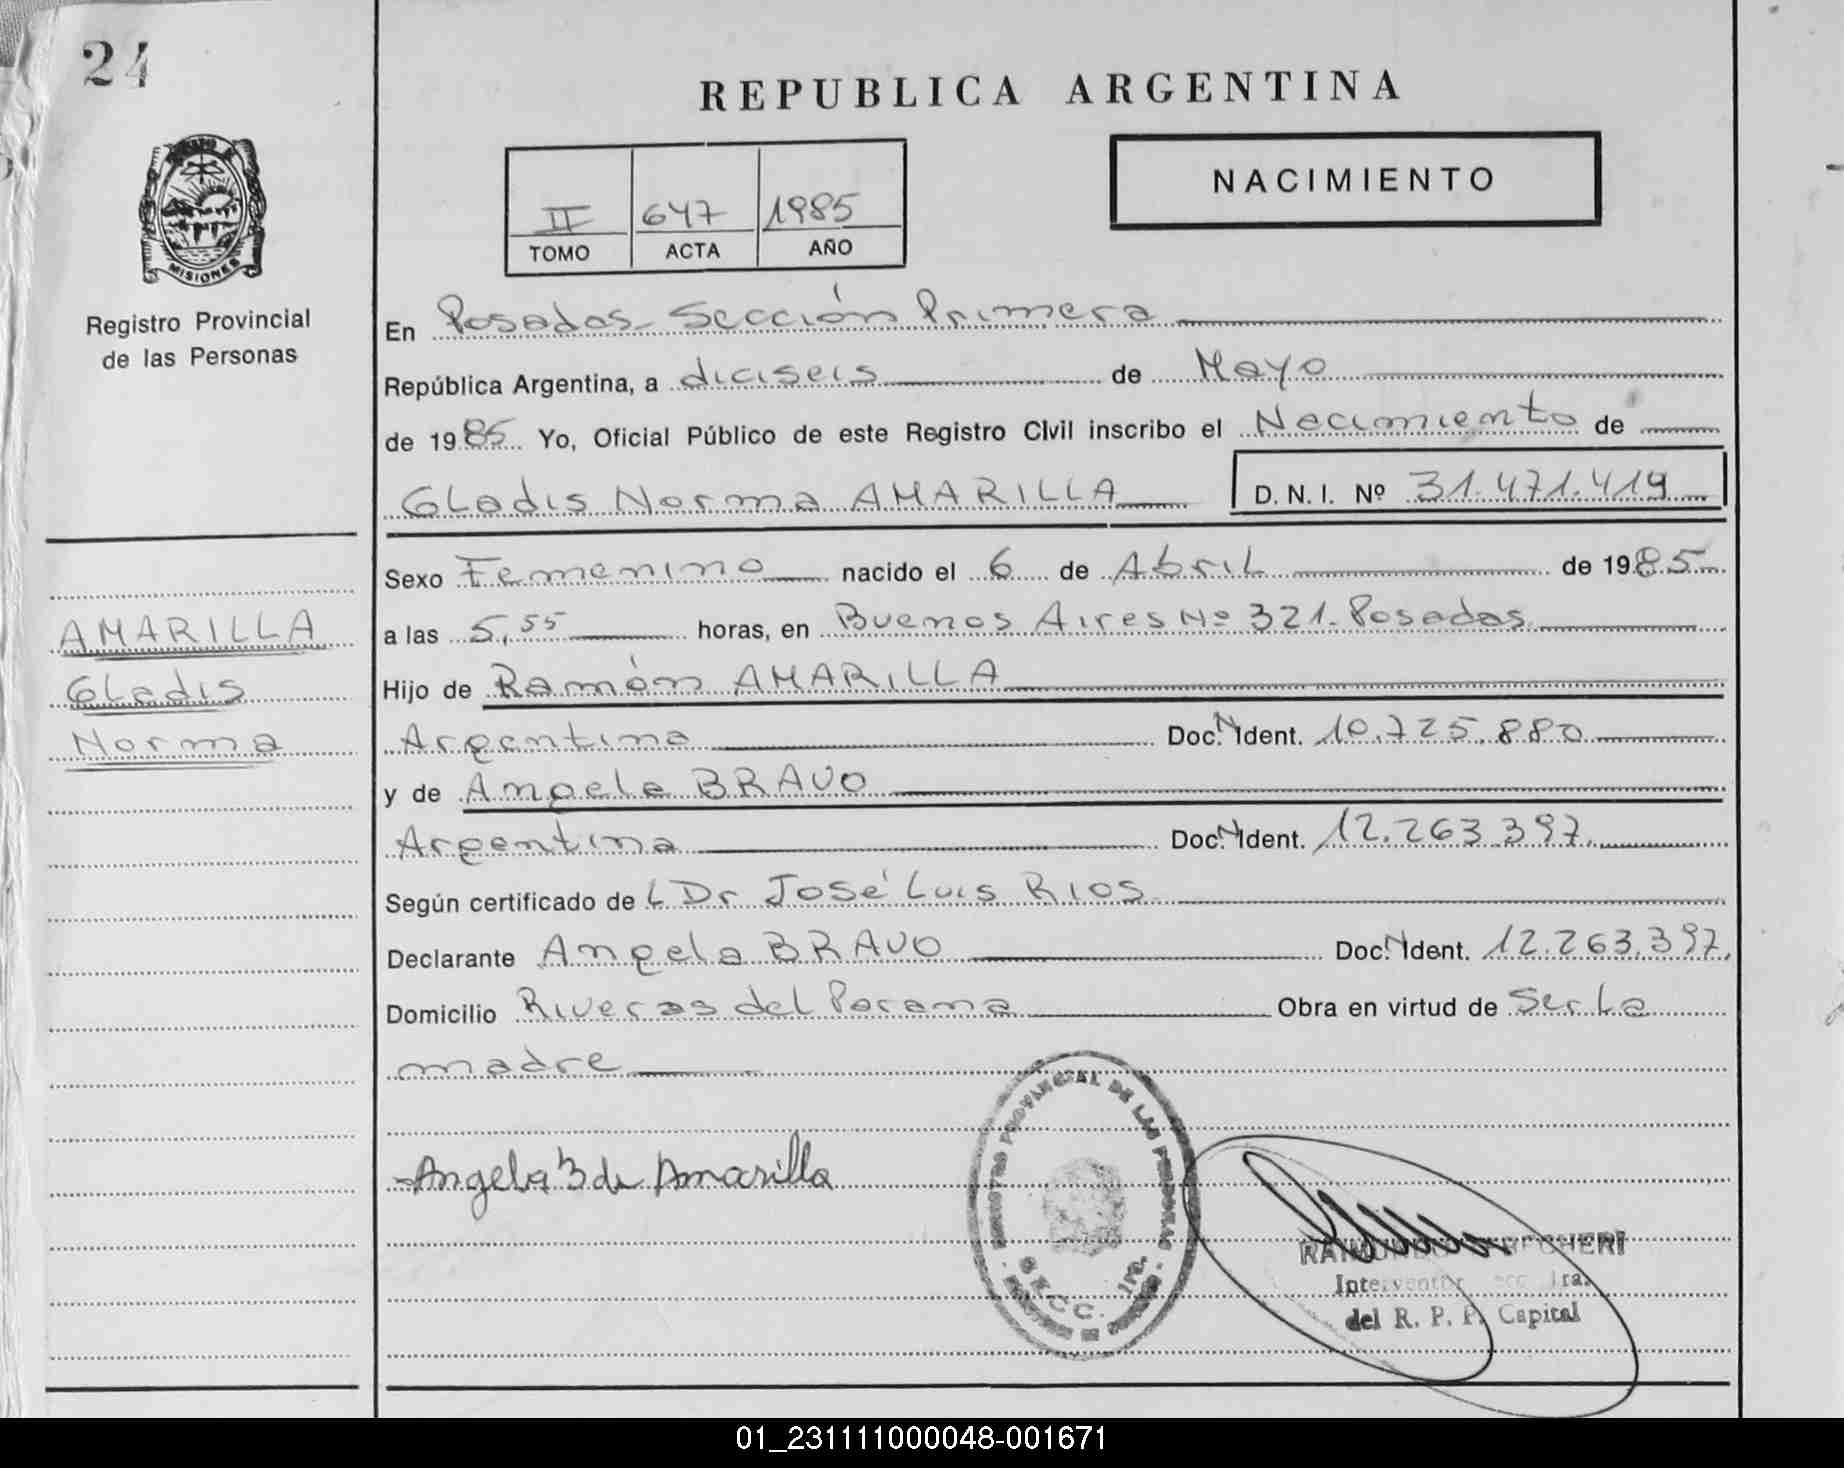 24
REPUBLICA ARGENTINA
MISIONES
Registro Provincial
de las Personas
II 647 1985
TOMO ACTA AÑO
NACIMIENTO
En Posadas Sección Primera
República Argentina, a diciseis de Mayo
de 1985 Yo, Oficial Público de este Registro Civil inscribo el Nacimiento de
Gladis Norma AMARILLA D. N. I. Nº 31.471.419
Sexo Femenino nacido el 6 de Abril de 1985
a las 5,55 horas, en Buenos Aires Nº 321. Posadas
Hijo de Ramón AMARILLA
Argentina Doc. N Ident. 10.725.880
y de Angela BRAVO
Argentina Doc. N Ident. 12.263.397
Según certificado de L Dr José Luis RIOS
Declarante Angela BRAVO Doc. N Ident. 12.263.397
Domicilio Riveras del Parana Obra en virtud de Ser La
madre
AMARILLA
Gladis
Norma
Angela B de Amarilla
REGISTRO PROVINCIAL DE LAS PERSONAS
1ra.
Interventor Secc 1ra.
del R. P. P. Capital
01_231111000048-001671